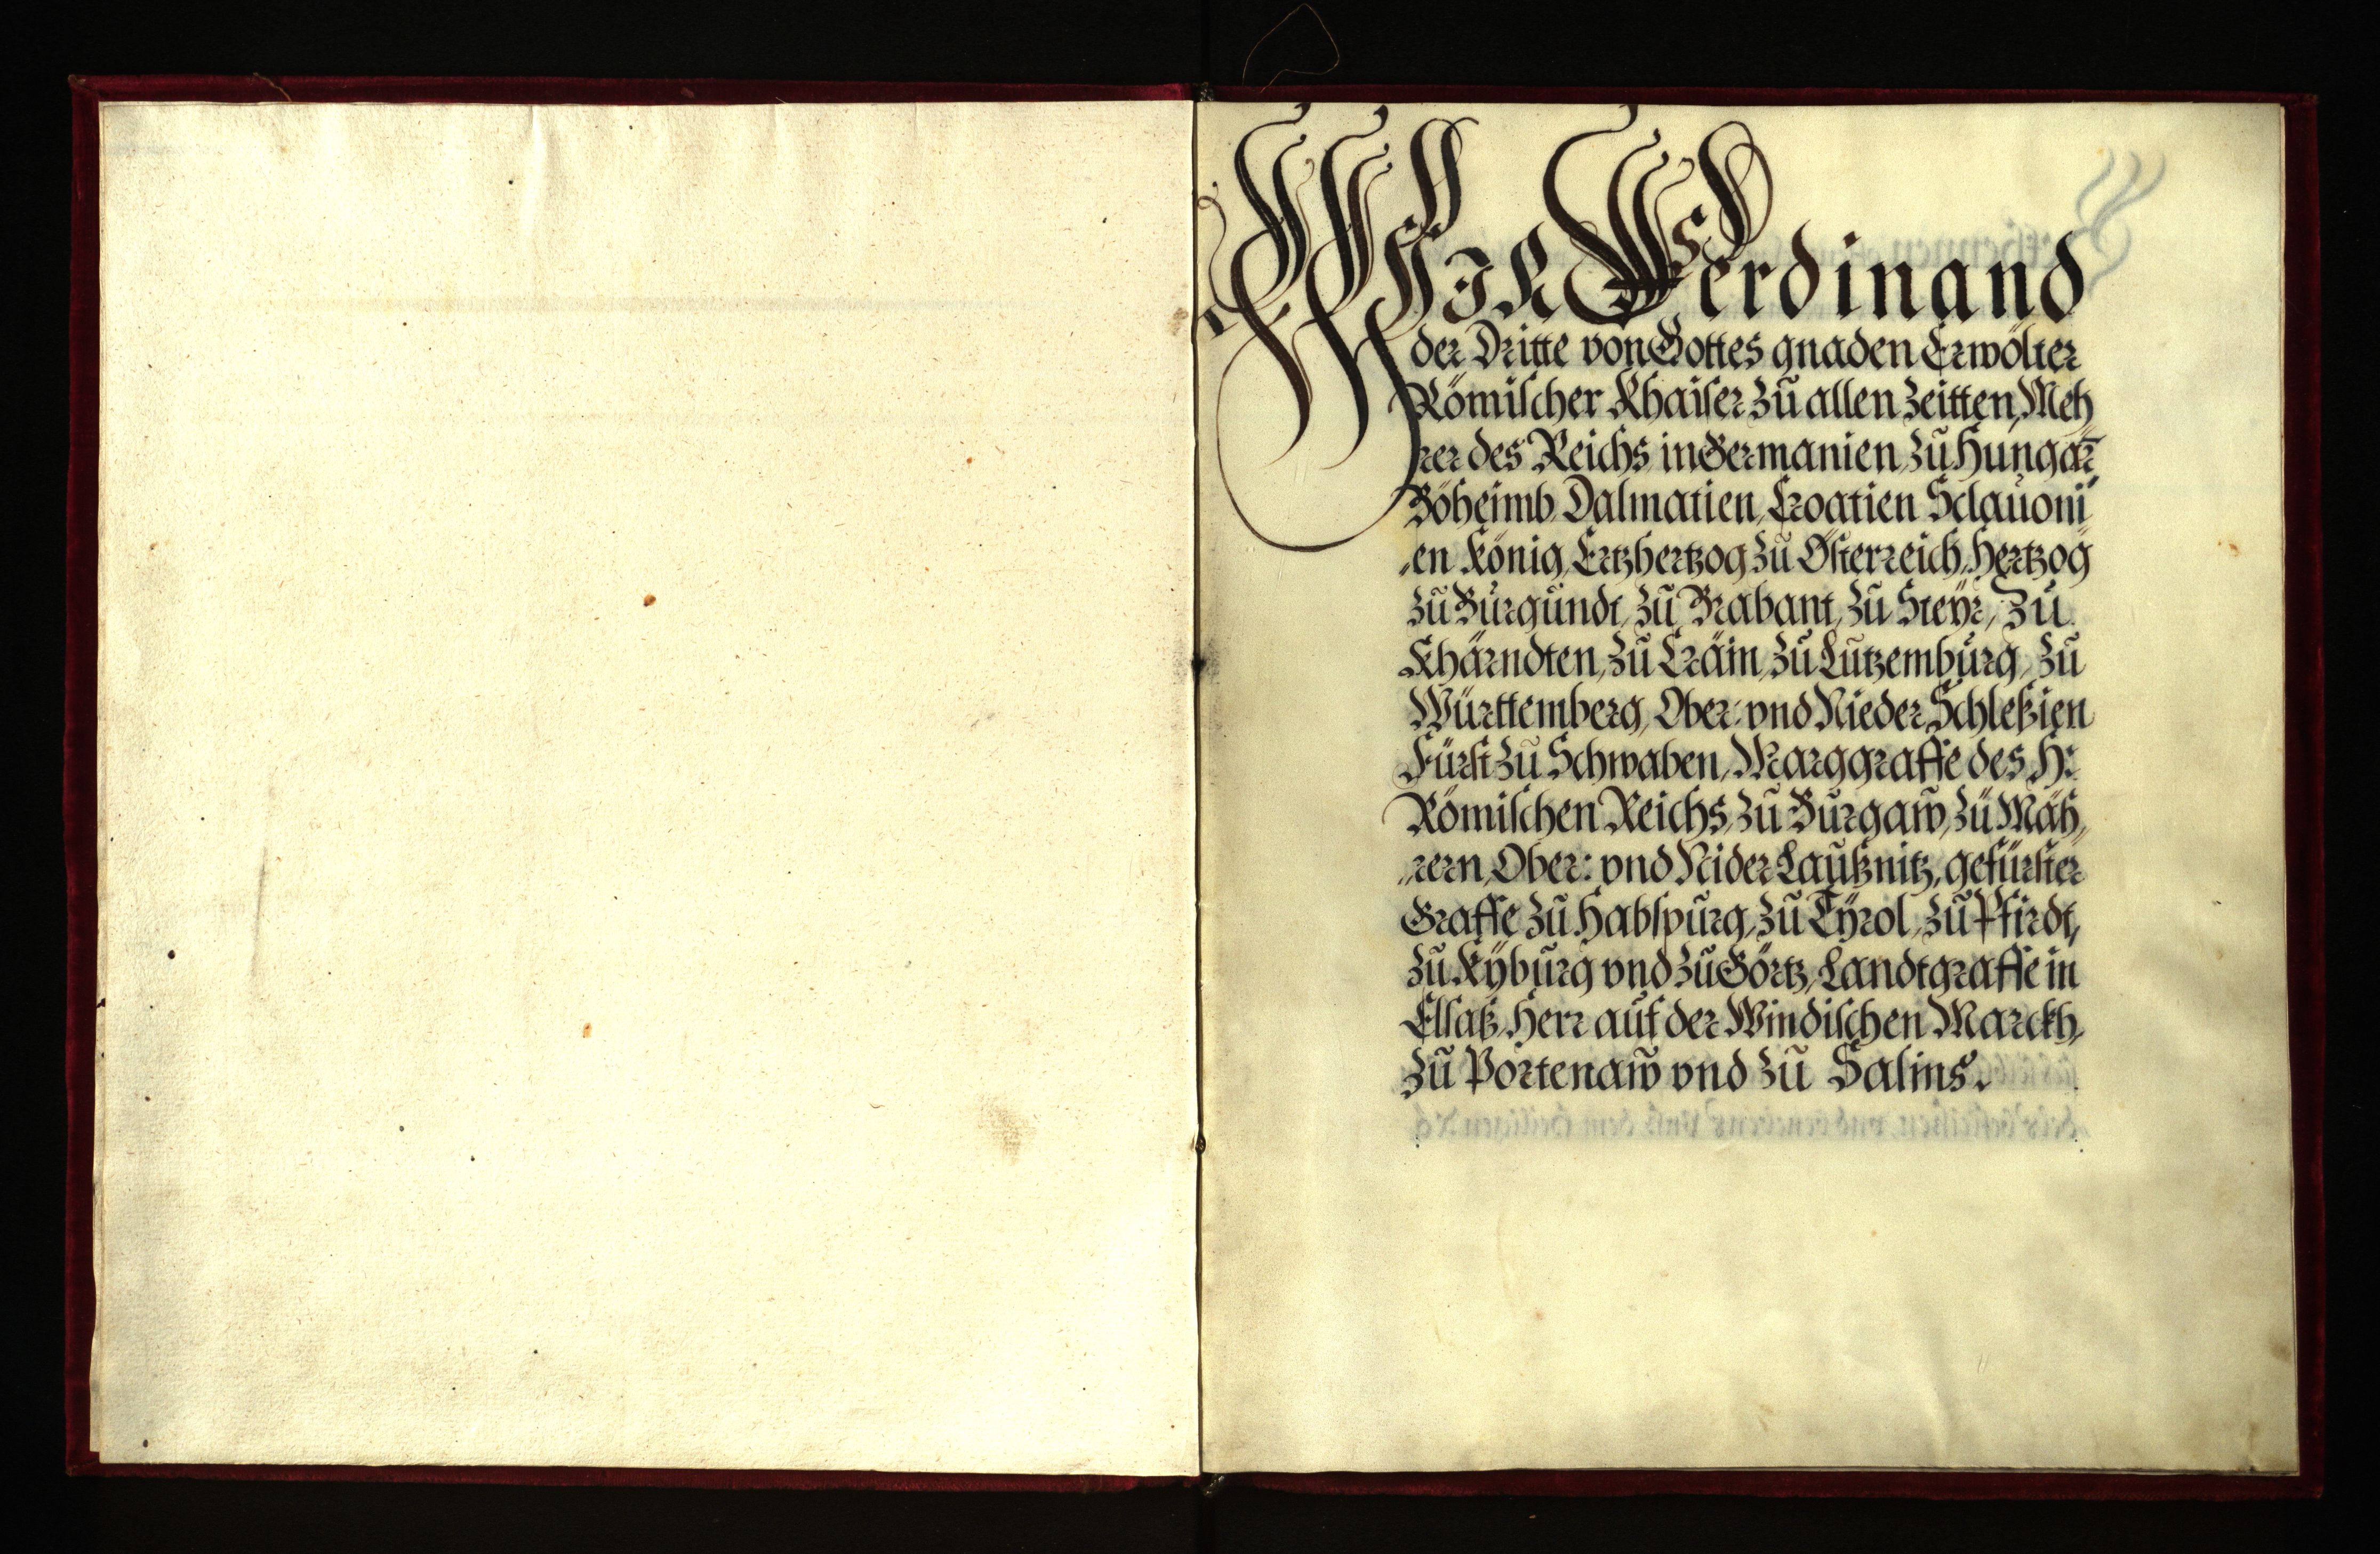 WIR Ferdinand
der Dritte von Gottes gnaden Erwölter
Römischer Khaiser zu allen Zeitten, Meh
rer des Reichs, in Germanien, zu Hungarn̄,
Böheimb, Dalmatien, Croatien Sclauoni
„en König, Ertzhertzog zu Össterreich, Hertzog
zu Burgundt, zu Brabant, zu Steÿr, Zu
Khärndten, zu Cräin, zu Lutzemburg, zu
Württemberg, Ober: vnd Nieder Schleßien
Fürst zu Schwaben, Marggraffe des H:
Römischen Reichs, zu Burgaw, zu Mäh„
„rern, Ober: vnd Nider Laußnitz, gefürster
Graffe zu Habspurg, zu Tÿrol, zu Pfirdt,
zu Kÿburg vnd zu Görtz, Landtgraffe in
Elsaß, Herr auf der Windischen Marckh,
zu Portenaw vnd zu Salins.